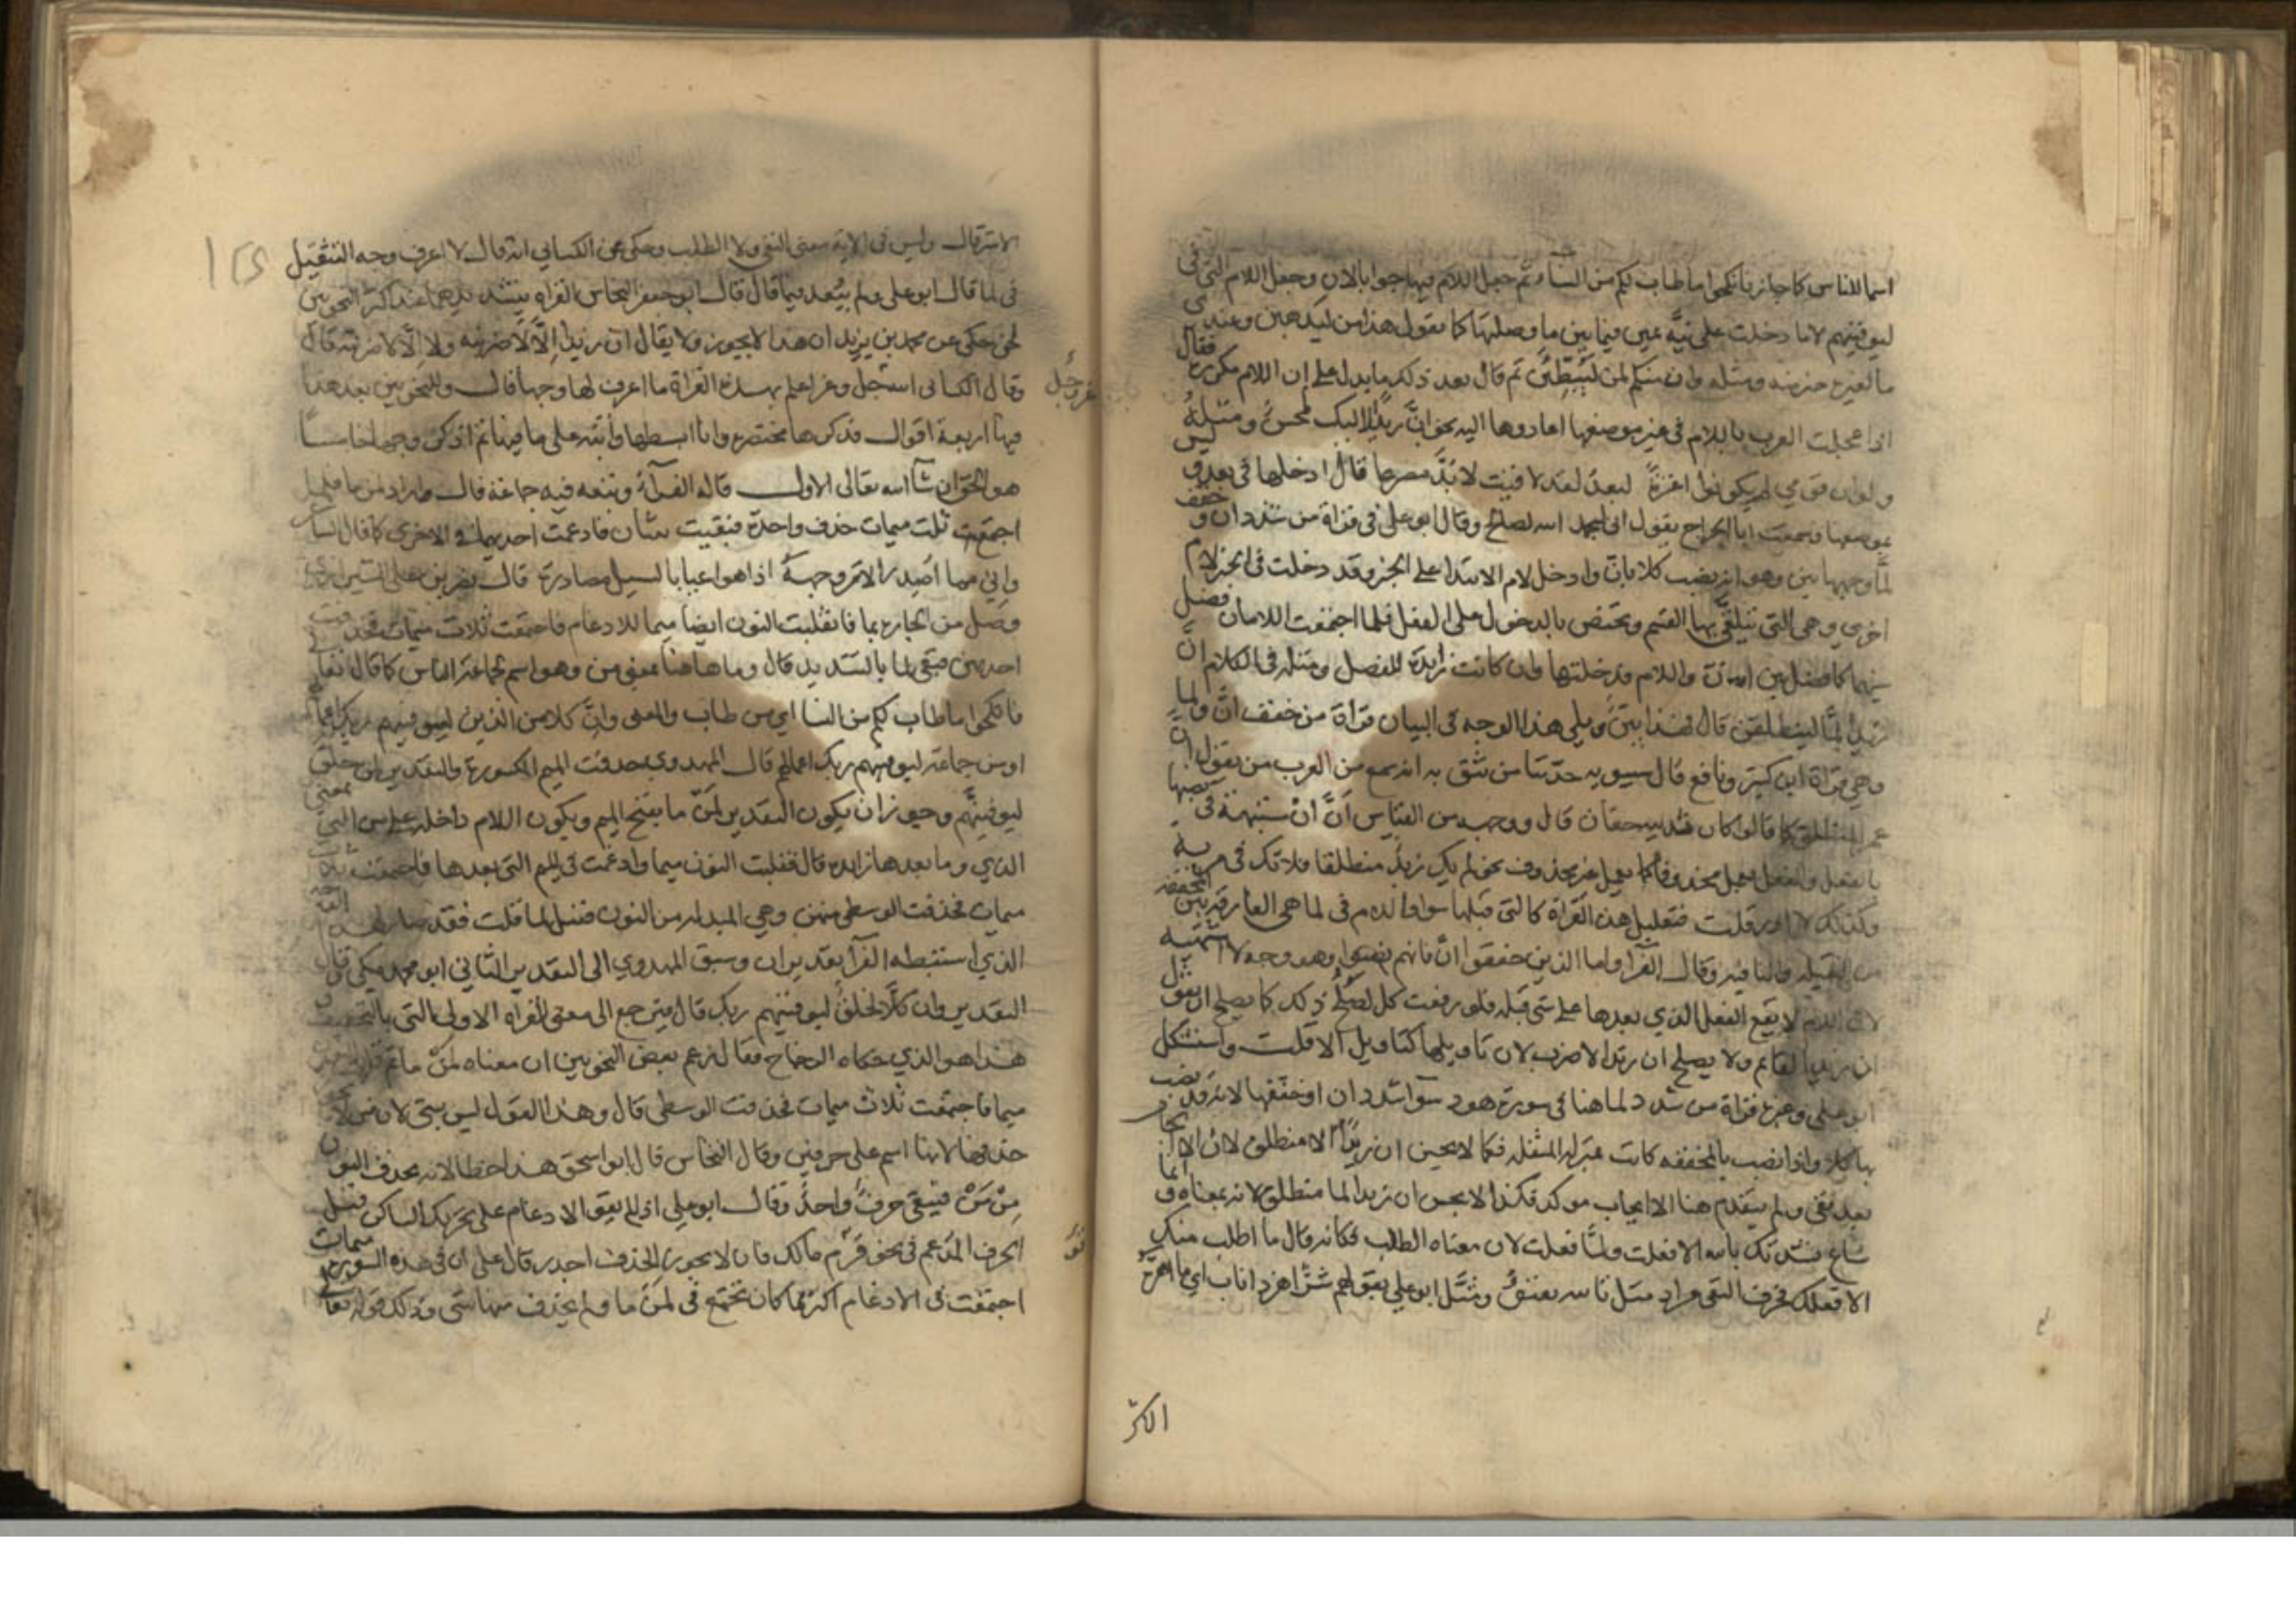 اسما للناس كما جاز فانكحوا ما طاب لكم من النسآء ثم جعل اللام فيها جوابا لان وجعل اللام التي في
ليوفينهم لاما دخلت على نيّة يمين فيما بين ما وصلتها كما يقول هذا من ليذهبن وعندي
ما لغيره خير منه ومثله وان منكم لمن ليبطئن ثم قال بعد ذكره ما يدل على ان اللام مكررة فقال
اذا عجلت العرب باللام في غير موضعها اعادوها اليه نحو انّ زيدا لاليك لمحسن ومثله
ولو ان قومي لم يكونوا اعزة لبعدُ لقد لاقيت لا بُدّ مصرعا قال ادخلها في بعد وليس
بموضعها وسمعت ابا الجراح يقول اني لبحمد الله لصالح وقال ابو علي في قراة من شدد ان وخفف
لما وجهها بين وهو انه نصب كلا بان وادخل لام الابتدا على الخبر وقد دخلت في الخبر لام
اخرى وهي التي يتلقّى بها القسم وتختص بالدخول على الفعل فلما اجتمعت اللامان فصل
بينهما كما فصل بين ان واللام فدخلتها وان كانت زايدة للفصل ومثله في الكلام انّ
زيدا لمّا لينطلقن قال هذا بيّن ويلي هذا الوجه في البيان قراة من خفف انّ ولما
وهي قراة ابن كثير ونافع قال سيبويه حدّثنا من نثق به انه سمع من العرب من يقول انّ
عمرا لمنطلق كما قالوا كان ثدييه حقان قال ووجهه من القياس انّ انْ مشبهة في نصبها
بالفعل والفعل يعمل محذوفا كما يعمل غير محذوف نحو لم يك زيدٌ منطلقا فلا تك في مرية
وكذلك لا ادر قلت فتعليل هذه القراة كالتي قبلها سوا واللام في لما هي الفارقة بين المخففة
من الثقيلة والنافية وقال الفرآ واما الذين خففوا انّ فانهم نصبوا وهو وجه لا اشتهيه
لان اللام لا يقع الفعل الذي بعدها على شي قبله فلو رفعت كل لصلُح ذلك كما يصلح ان يقول
ان زيد لقائم ولا يصلح ان زيدا لاضرب لان تاويلها كتاويل الا قلت واستشكل
ابو علي وغيره قراة من شدد لما هنا في سورة هود سوآ شدد ان او خففها لانه قد نصب
بها كلا واذا نصب بالمخففة كانت بمنزلة المثقلة فكما لا يحسن ان زيدًا الا منطلق لان الا ايجاب
بعد نفي ولم يتقدم هنا الا ايجاب موكد فكذا لا يحسن ان زيدا لما منطلق لانه بمعناه وانما
شاع نشدتك بالله الا فعلت ولمّا فعلت لان معناه الطلب فكانه قال ما اطلب منك
الا فعلك فحرف النفي مراد مثل تالله تفتؤُ ومثّل ابو علي بقولهم شرٌّ اهر ذا ناب اي ما اهرّه
الاكثر
الا شر قال وليس في الاية معنى النفي ولا الطلب وحكى عن الكسائي انه قال لا اعرف وجه التثقيل
في لما قال ابو علي ولم يبعد فيما قال قال ابو جعفر النحاس القراة بتشديدهما عند اكثر النحويين
لحن حكى عن محمد بن يزيد ان هذا لا يجوز ولا يقال ان زيدا إلّا لاضربنه ولا لمّا لاضربنه قال
وقال الكسائي الله عز وجل اعلم بهذه القراة ما اعرف لها وجها قال وللنحويين بعد هذا
فيها اربعة اقوال فذكرها مختصرة وانا ابسطها وأنبّه على ما فيها ثم اذكر وجها خامسًا
هو الحق ان شآ الله تعالى الاول قاله الفرآء وتبعه فيه جماعة قال واراد لمن ما فلما
اجتمعت ثلث ميمات حذف واحدة فبقيت ثنتان فادغمت احديهما في الاخرى كما قال الشاعر
واني لمما اصدر الامر وجهه اذا هو اعيا بالسبيل مصادره قال نصر بن علي الشيرازي
وصل من الجارة بما فانقلبت النون ايضا ميما للادغام فاجتمعت ثلاث ميمات فحذفت
احديهن فبقي لما بالتشديد قال وما هاهنا بمعنى من وهو اسم لجماعة الناس كما قال تعالى
فانكحوا ما طاب لكم من النسا اي من طاب والمعنى وانّ كلا من الذين ليوفينهم ربك اعمالهم
او من جماعة ليوفينهم ربك اعمالهم قال المهدوي حذفت الميم المكسورة والتقدير لمن خلق
ليوفينّهم وجوز ان يكون التقدير لمنْ ما بفتح الميم ويكون اللام داخلة على من التي بمعنى
الذي وما بعدها زايدة قال فقلبت النون ميما وادغمت في الميم التي بعدها فاجتمعت ثلاث
ميمات فحذفت الوسطى منهن وهي المبدلة من النون فقيل لما قلت فقد صار لهذا القول
الذي استنبطه الفرآ تقديران وسبق المهدوي الى التقدير الثاني ابو محمد مكي قال
التقدير وان كلّا لخلقٌ ليوفينهم ربك قال فيرجع الى معنى القراة الاولى التي بالتخفيف
هذا هو الذي حكاه الزجاج فقال زعم بعض النحويين ان معناه لمنْ ما ثم قلبت النون
ميما فاجتمعت ثلاث ميمات فحذفت الوسطى قال وهذا القول ليس بشي لان من لا يجوز
حذفها لانها اسم على حرفين وقال النحاس قال ابو اسحق هذا خطا لانه يحذف النون
مِنْ مَنْ فيبقى حرفٌ واحدٌ وقال ابو علي اذا لم يقو الادغام على تحريك الساكن قبل
الحرف المدغم في نحو قَرْم مالك فان لا يجوز الحذف اجدر قال على ان في هذه السورة ميمات
اجتمعت في الادغام اكثر مما كان يجتمع في لمَنْ ما ولم يحذف منها شي وذلك قوله تعالى